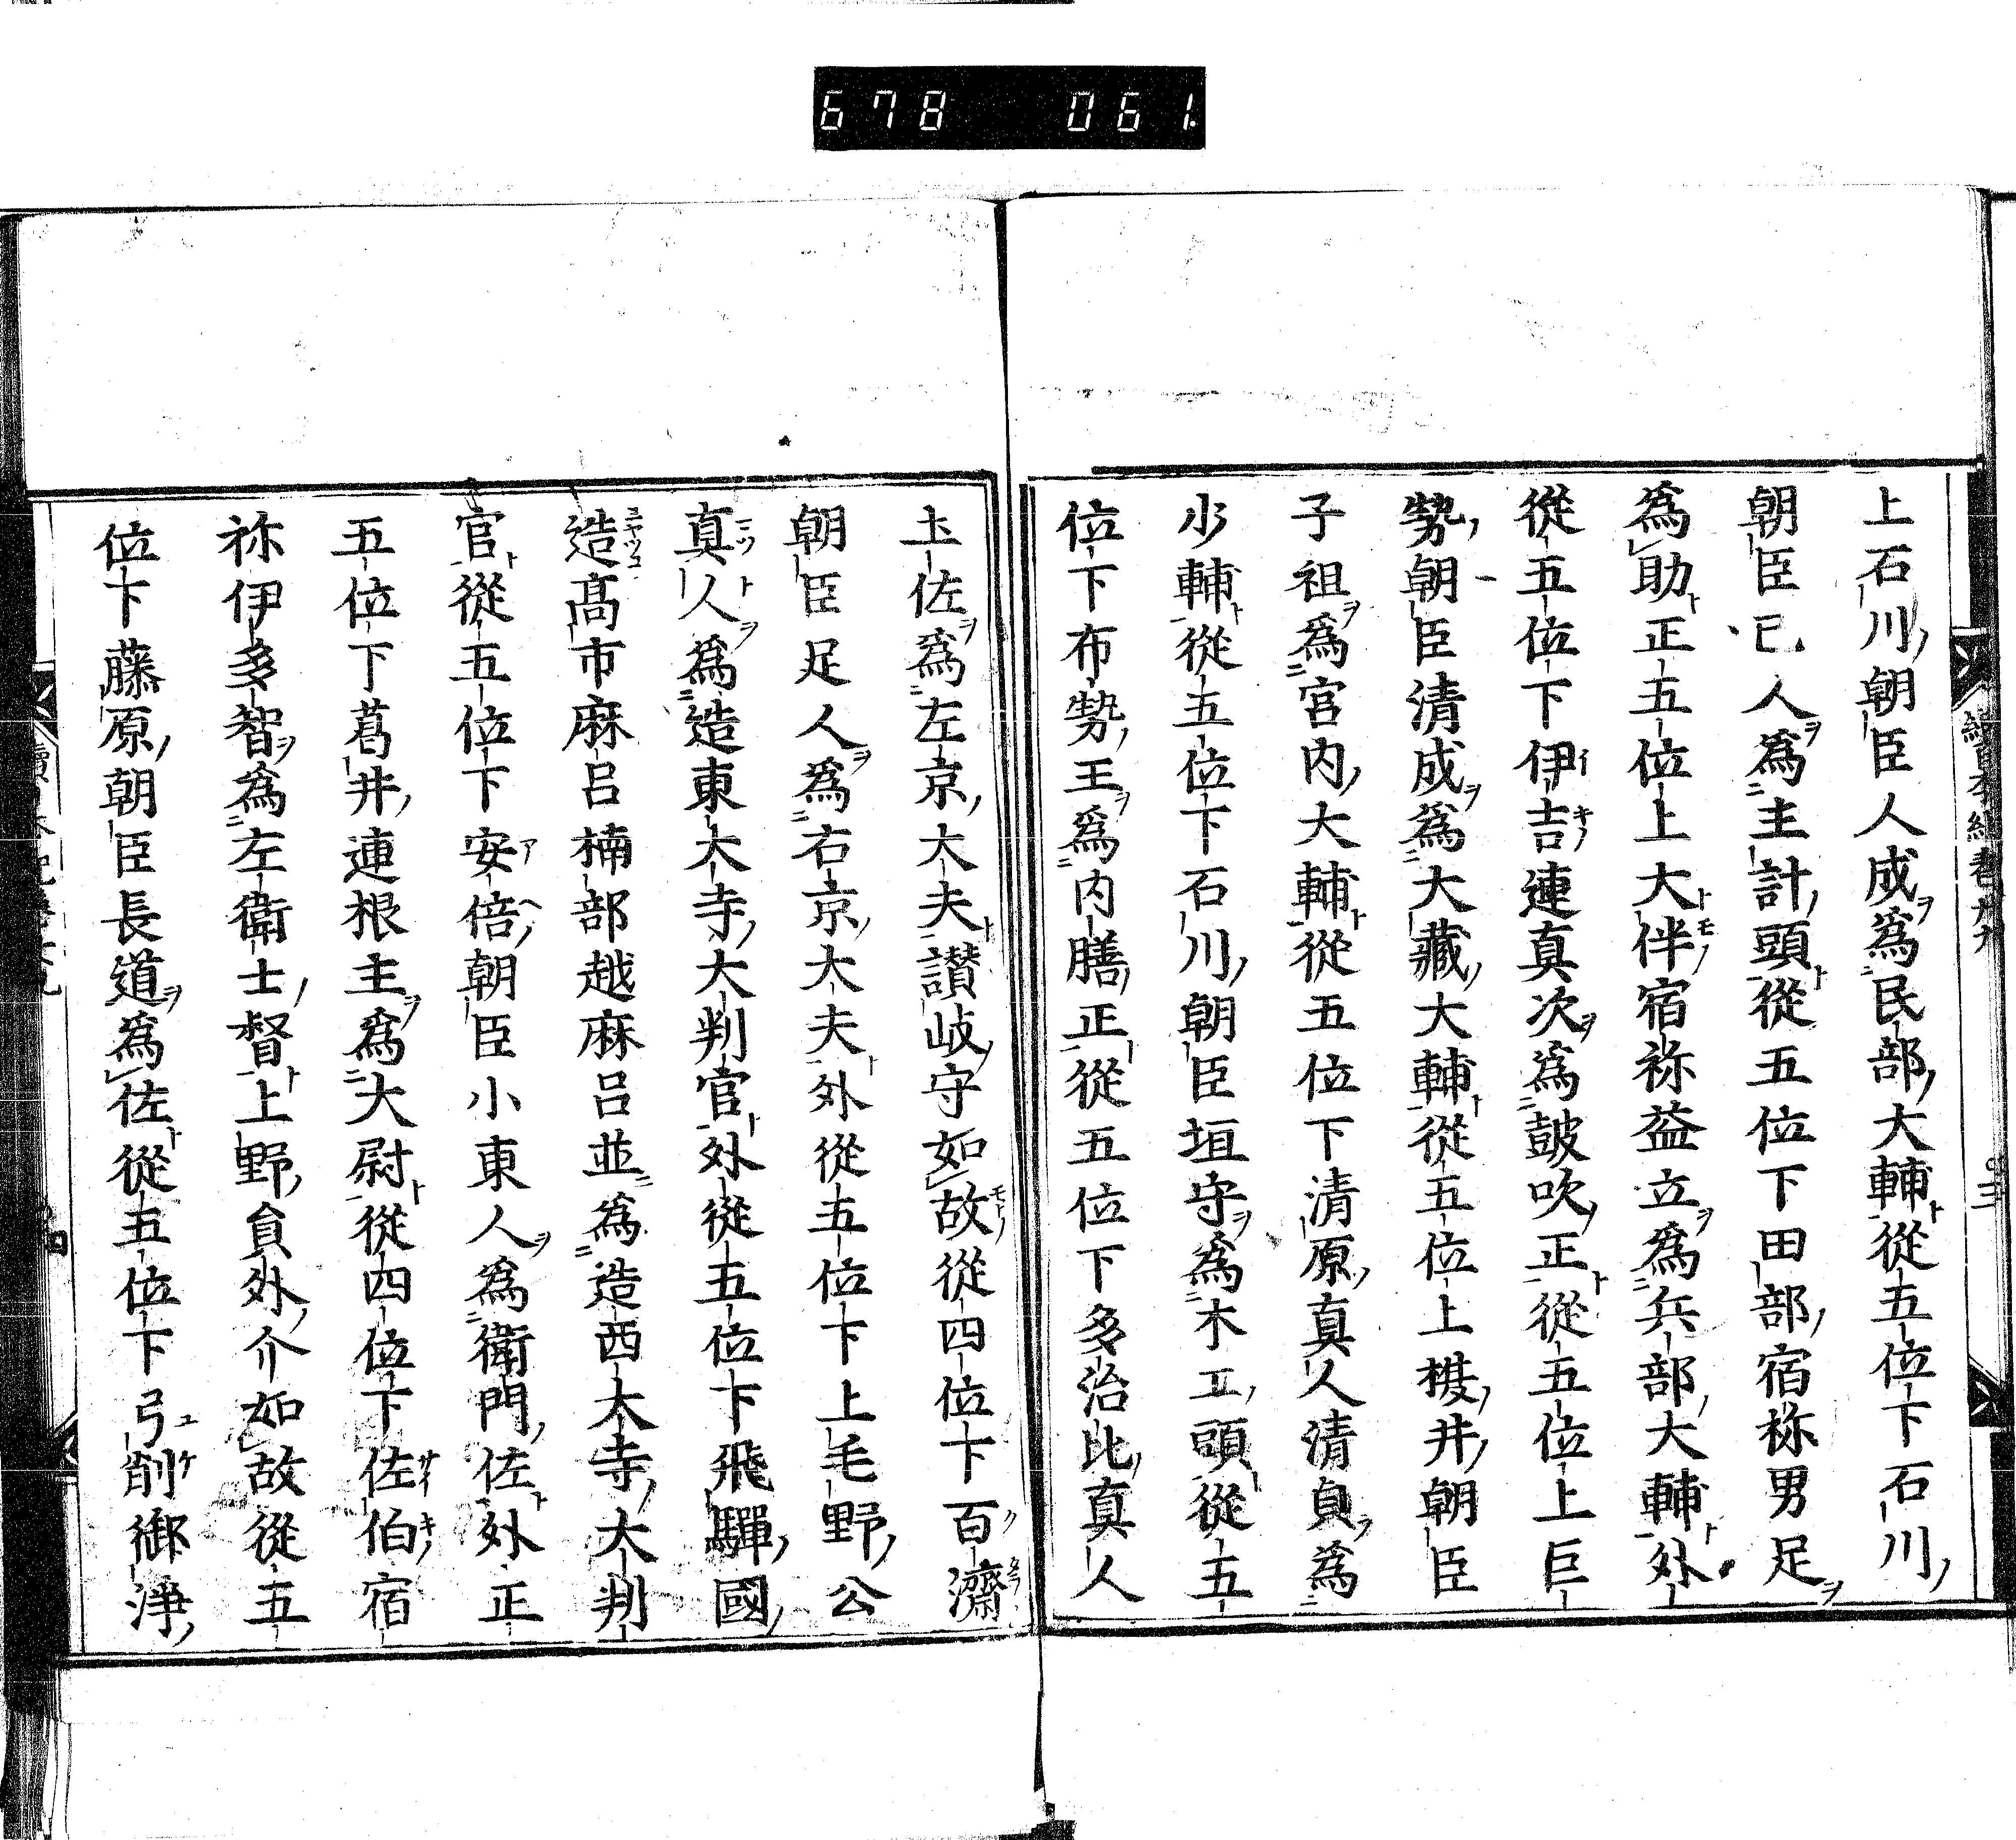 678 061
上石川朝臣人成爲民部大輔從五位下石川
朝臣已人爲主計頭從五位下田部宿祢男足
爲助正五位上大伴宿祢益立爲兵部大輔外
從五位下伊吉連真次爲鼓吹正從五位上巨
勢朝臣清成爲大藏大輔從五位上榎井朝臣
子祖爲宮内大輔從五位下清原真人清貞爲
少輔從五位下石川朝臣垣守爲木工頭從五
位下布勢王爲内膳正從五位下多治比真人
圡佐爲左京大夫讃岐守如故從四位下百濟
朝臣足人爲右京大夫外從五位下上毛野公
真人爲造東大寺大判官外從五位下飛驒國
造髙市麻呂楠部越麻呂並爲造西大寺大判
官從五位下安倍朝臣小東人爲衛門佐外正
五位下葛井連根主爲大尉從四位下佐伯宿
祢伊多智爲左衛士督上野員外介如故從五
位下藤原朝臣長道爲佐從五位下弓削御淨